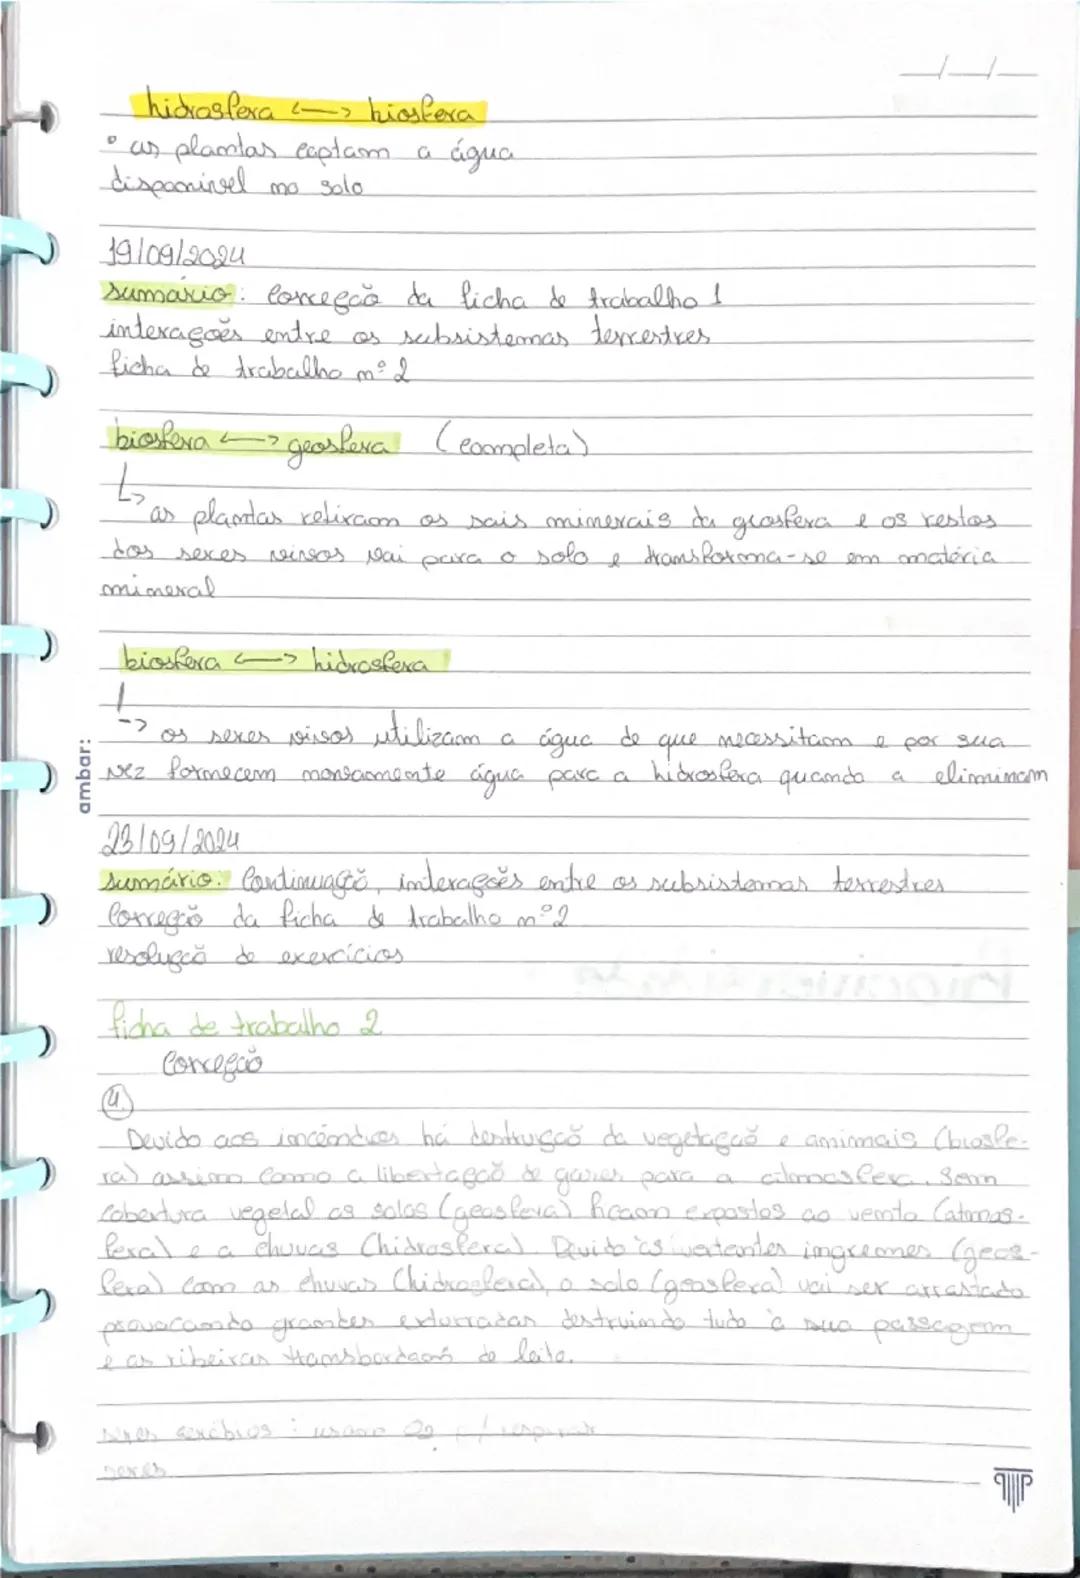 hidrosfera <—> biosfera
• as plantas captam a água
disponivel no solo
19/09/2024
sumário: Correção da ficha de trabalho 1
interações entre os subsistemas terrestres
ficha de trabalho nº 2
biosfera <—> geosfera (completa)
↳ as plantas retiram os sais minerais da geosfera e os restos
dos seres vivos vai para o solo e transforma-se em matéria
mineral
biosfera <—> hidrosfera
↳ os seres vivos utilizam a água de que necessitam e por sua
vez fornecem novamente água para a hidrosfera quando a eliminam
ambar:
23/09/2024
sumário: Continuação, interações entre os subsistemas terrestres
Correção da ficha de trabalho nº2
resolução de exercícios
ficha de trabalho 2
Correção
4.
Devido aos incêndios há destruição da vegetação e animais (biosfe-
ra) assim como a libertação de gases para a atmosfera. Sem
cobertura vegetal os solos (geosfera) ficam expostos ao vento (atmos-
fera) e a chuvas (hidrosfera). Devido às vertentes ingremes (geos-
fera) com as chuvas (hidrosfera), o solo (geosfera) vai ser arrastado
provocando grandes enxurradas destruindo tudo à sua passagem
e as ribeiras transbordam do leito.
seres aeróbios : usam O2 p/ respirar
seres